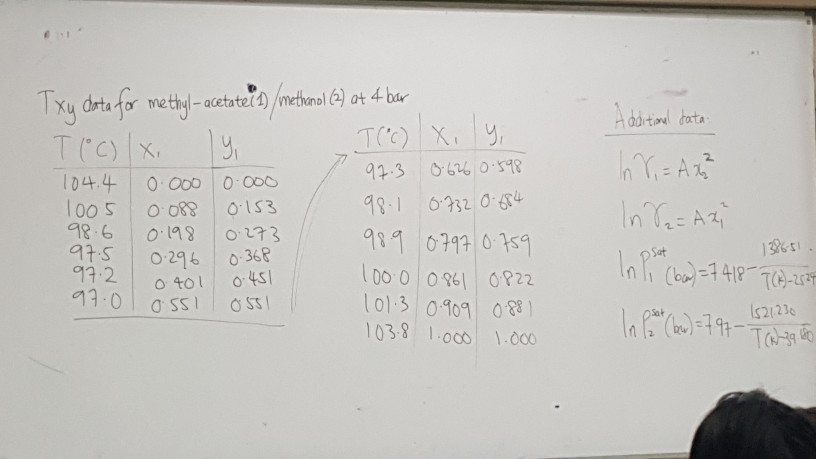 Txy data for methyl-acetate(1)/methanol(2) at 4 bar
T(°C) x₁ y₁
104.4 0.000 0.000
100.5 0.088 0.153
98.6 0.198 0.273
97.5 0.296 0.368
97.2 0.401 0.451
97.0 0.551 0.551
T(°C) x₁ y₁
97.3 0.626 0.598
98.1 0.732 0.684
98.9 0.797 0.759
100.0 0.861 0.822
101.3 0.909 0.881
103.8 1.000 1.000
Additional data:
ln γ₁ = Ax₂²
ln γ₂ = Ax₁²
ln P₁ˢᵃᵗ (bar) = 7.418 - 1386.51 / T(K)-25.29
ln P₂ˢᵃᵗ (bar) = 7.97 - 1521.230 / T(K)-39.180